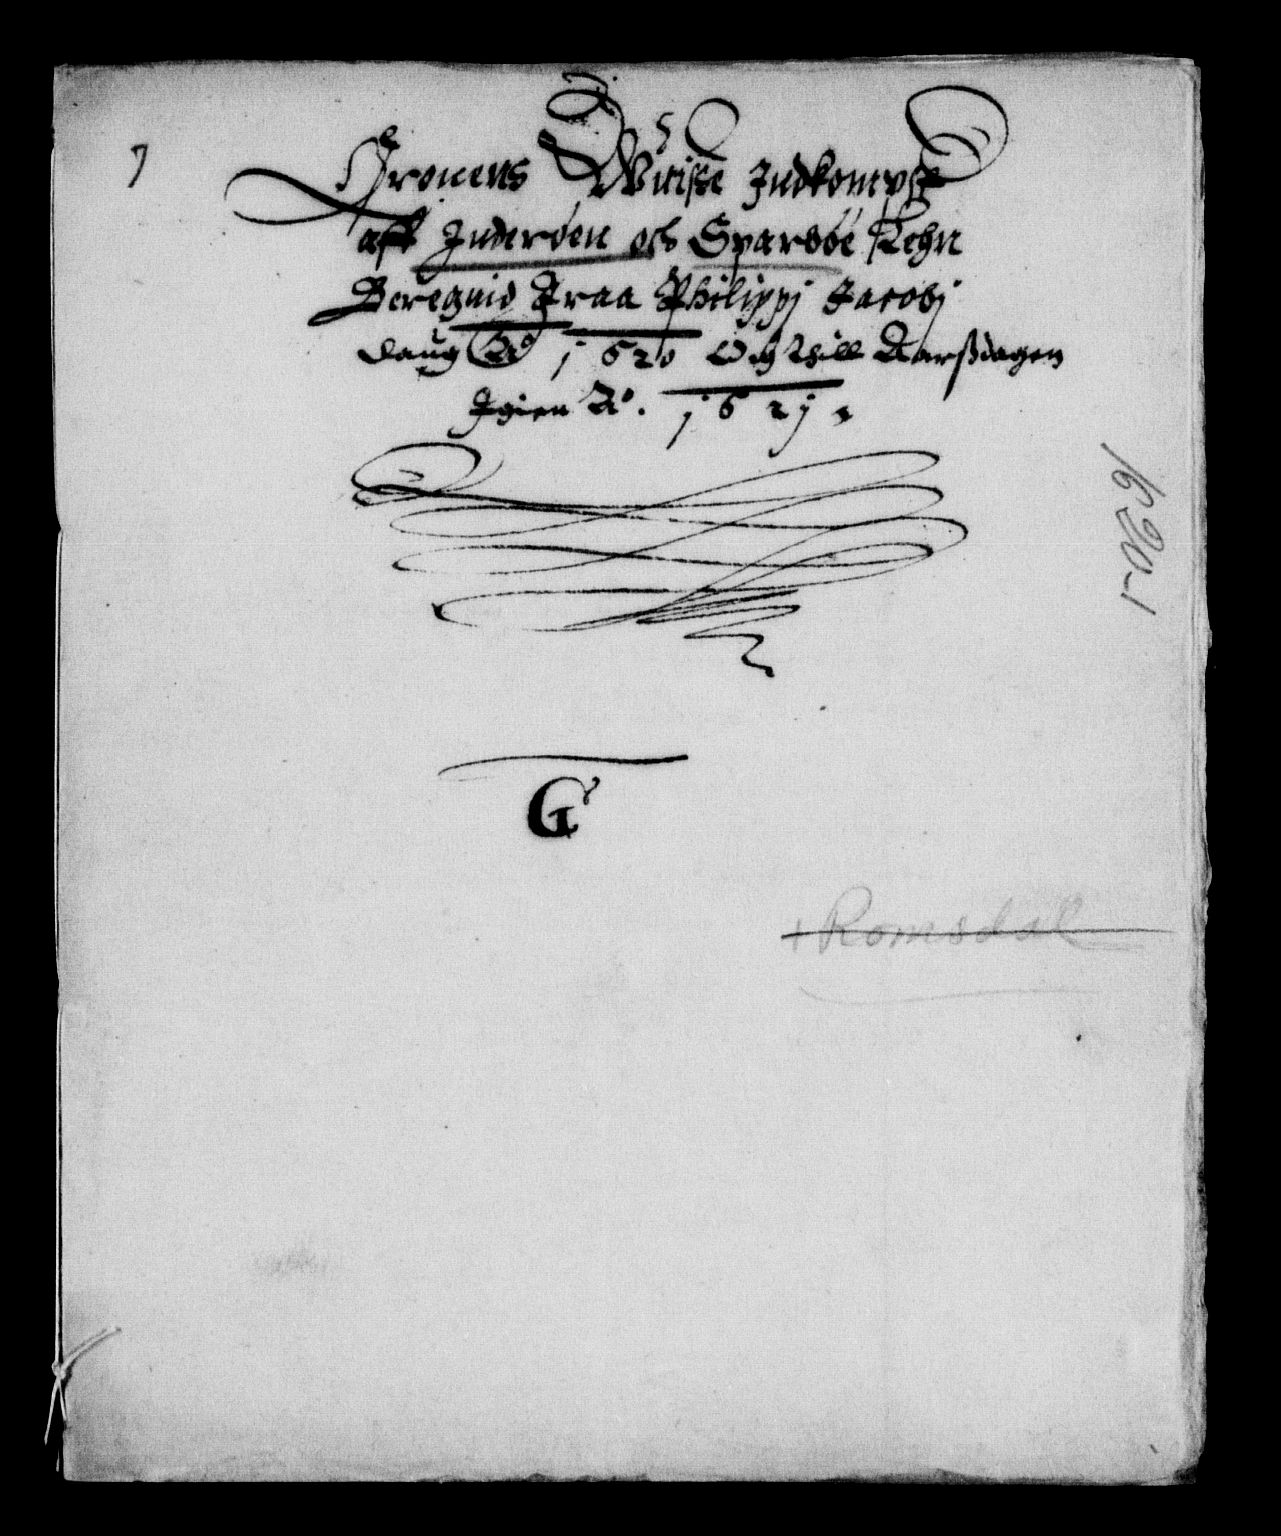 7
Cronens Wuiße Indkompst
aff Inderøen och Sparboe Lehn
Beregnid Fraa Philippj Jacobj
daug Ao 1620 Och thill Aarßdagen
Igien Ao. 1621.
G
+ Romsdal